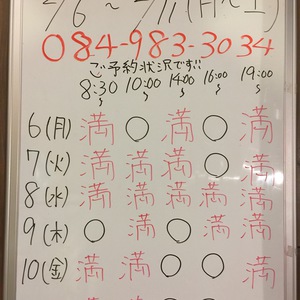 2/6 ～ 2/11 (月～土)
084-983-3034
ご予約状況です!!
8:30～ 10:00～ 14:00～ 16:00～ 19:00～
6(月) 満 ○ 満 ○ 満
7(火) 満 満 満 ○ 満
8(水) 満 満 満 満 満
9(木) ○ 満 ○ 満 満
10(金) 満 満 ○ ○ 満